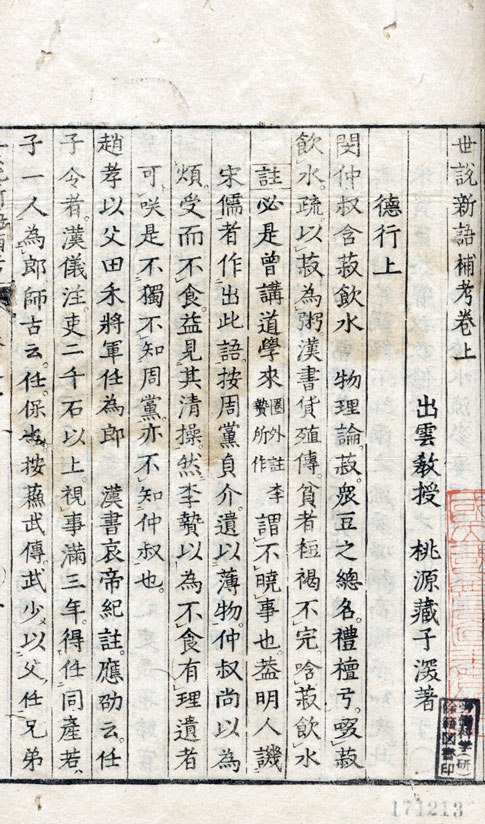 世說新語補考卷上
出雲教授 桃源藏子深著
德行上
閔仲叔含菽飲水 物理論菽。眾豆之總名。禮檀弓。啜菽
飲水。疏以菽為粥漢書貨殖傳貧者裋褐不完。唅菽飲水
註必是曾講道學來圈外註李贄所作謂不曉事也。蓋明人譏
宋儒者作出此語。按周黨貞介。遺以薄物。仲叔尚以為
煩。受而不食。益見其清操。然李贄以為不食有理遺者
可咲是不獨不知周黨。亦不知仲叔也。
趙孝以父田禾將軍任為郎 漢書哀帝紀註。應劭云。任
子令者。漢儀注。吏二千石以上視事滿三年。得任同產若
子一人為郎師古云。任。保也。按蘇武傳。武少以父任兄弟
171213